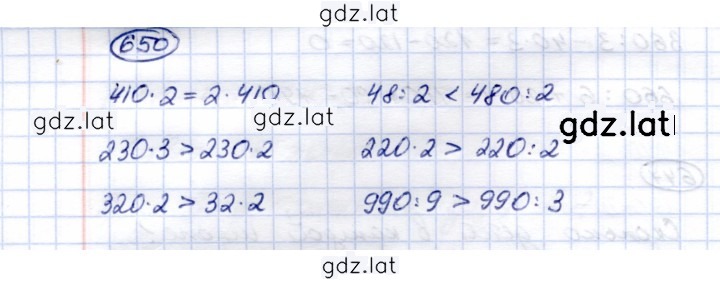 gdz.lat
650
410·2=2·410 48:2<480:2
gdz.lat gdz.lat gdz.lat
230·3>230·2 220·2>220:2
320·2>32·2 990:9>990:3
gdz.lat